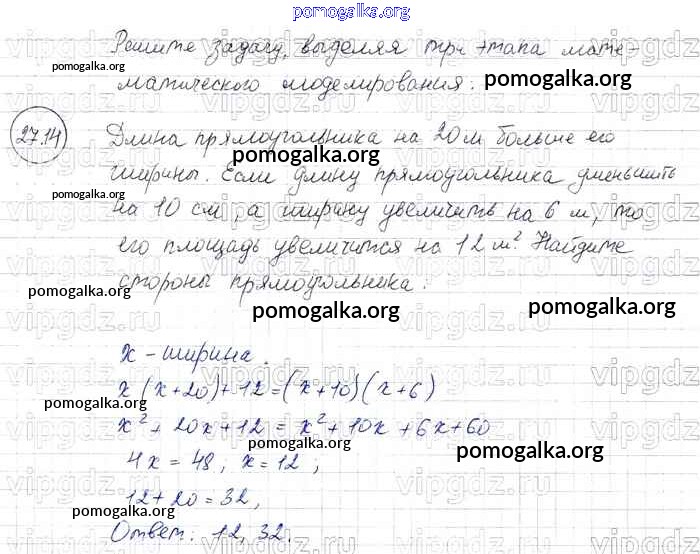 pomogalka.org
Решите задачу, выделяя три этапа мате-
pomogalka.org
матического моделирования:
pomogalka.org
27.14
Длина прямоугольника на 20 м больше его
pomogalka.org
ширины. Если длину прямоугольника уменьшить
pomogalka.org
на 10 см, а ширину увеличить на 6 м, то
pomogalka.org
его площадь увеличится на 12 м² Найдите
стороны прямоугольника.
pomogalka.org
pomogalka.org
vipgdz.ru
x - ширина.
x(x+20)+12=(x+10)(x+6)
pomogalka.org
x²+20x+12 = x²+10x+6x+60
pomogalka.org
pomogalka.org
4x = 48, x = 12;
pomogalka.org
12+20=32,
Ответ: 12, 32.
pomogalka.org